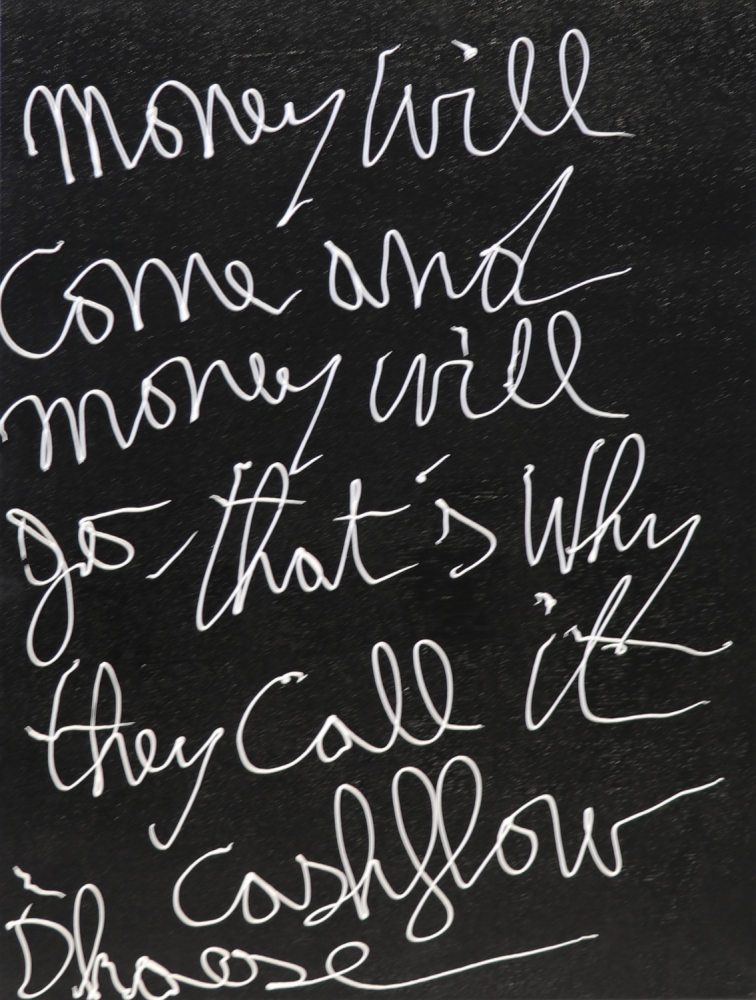 Money Will
Come and
money will
go, that's Why
they Call it
Cashflow